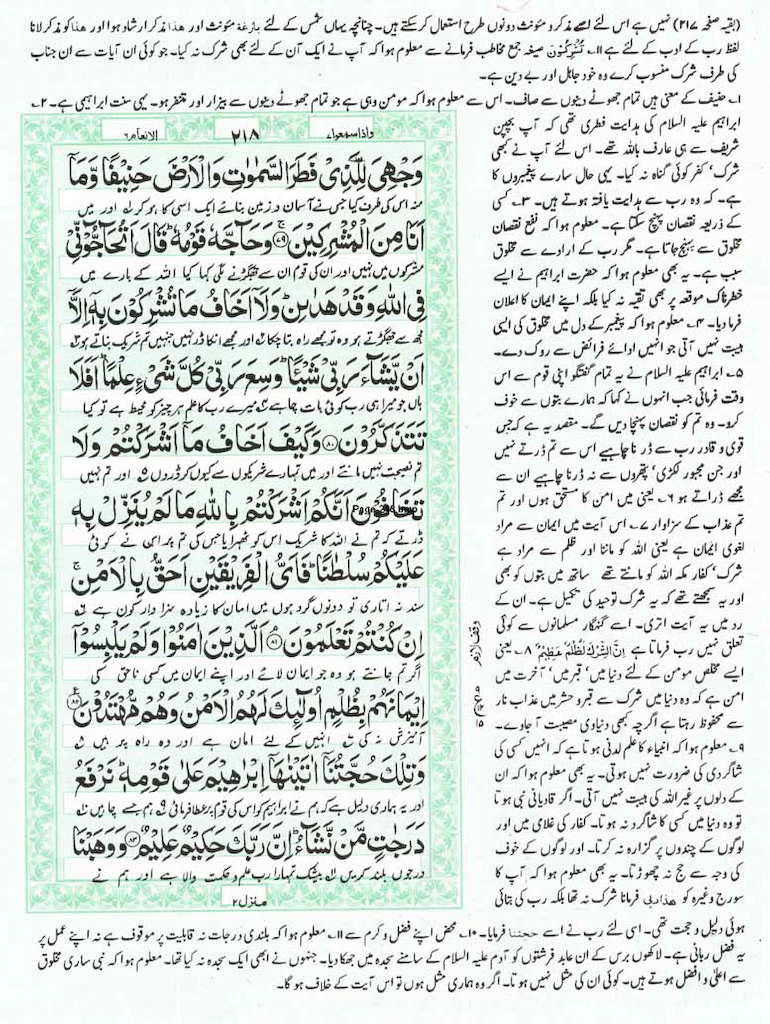 (بقیہ صفحہ ۲۱۷) نہیں ہے اس لئے اسے مذکر و مؤنث دونوں طرح استعمال کر سکتے ہیں۔ چنانچہ یہاں شمس کے لئے بازغة مؤنث اور هذا مذکر ارشاد ہوا اور هذا کو مذکر لانا
لفظ رب کے ادب کے لئے ہے ۱۱۔ تُشْرِكُوْنَ صیغہ جمع مخاطب فرمانے سے معلوم ہوا کہ آپ نے ایک آن کے لئے بھی شرک نہ کیا۔ جو کوئی ان آیات سے ان جناب
کی طرف شرک منسوب کرے وہ خود جاہل اور بے دین ہے۔
۱۔ حنیف کے معنی ہیں تمام جھوٹے دینوں سے صاف۔ اس سے معلوم ہوا کہ مومن وہی ہے جو تمام جھوٹے دینوں سے بیزار اور متنفر ہو۔ یہی سنت ابراہیمی ہے۔ ۲۔
ابراہیم علیہ السلام کی ہدایت فطری تھی کہ آپ بچپن
شریف سے ہی عارف باللہ تھے۔ اس لئے آپ نے کبھی
شرک' کفر کوئی گناہ نہ کیا۔ یہی حال سارے پیغمبروں کا
ہے۔ کہ وہ رب سے ہدایت یافتہ ہوتے ہیں۔ ۳۔ کسی
کے ذریعہ نقصان پہنچ سکتا ہے۔ معلوم ہوا کہ نفع نقصان
مخلوق سے پہنچ جاتا ہے۔ مگر رب کے ارادے سے مخلوق
سبب ہے۔ یہ بھی معلوم ہوا کہ حضرت ابراہیم نے ایسے
خطرناک موقعہ پر بھی تقیہ نہ کیا بلکہ اپنے ایمان کا اعلان
فرما دیا۔ ۴۔ معلوم ہوا کہ پیغمبر کے دل میں مخلوق کی ایسی
ہیبت نہیں آتی جو انہیں ادائے فرائض سے روک دے۔
۵۔ ابراہیم علیہ السلام نے یہ تمام گفتگو اپنی قوم سے اس
وقت فرمائی جب انہوں نے کہا کہ ہمارے بتوں سے خوف
کرو۔ وہ تم کو نقصان پہنچا دیں گے۔ مقصد یہ ہے کہ جس
قوی و قادر رب سے ڈرنا چاہیے اس سے تم ڈرتے نہیں
اور جن مجبور لکڑی' پتھروں سے نہ ڈرنا چاہیے ان سے
مجھے ڈراتے ہو ۶۔ یعنی میں امن کا مستحق ہوں اور تم
تم عذاب کے سزاوار ۷۔ اس آیت میں ایمان سے مراد
لغوی ایمان ہے یعنی اللہ کو ماننا اور ظلم سے مراد ہے
شرک' کفار مکہ اللہ کو مانتے تھے ساتھ میں بتوں کو بھی
اور یہ سمجھتے تھے کہ یہ شرک توحید کی تکمیل ہے۔ ان کے
رد میں یہ آیت اتری۔ اسے گنہگار مسلمانوں سے کوئی
تعلق نہیں رب فرماتا ہے اِنَّ الشِّرْكَ لَظُلْمٌ عَظِيْمٌ ۸۔ یعنی
ایسے مخلص مومن کے لئے دنیا میں' قبر میں' آخرت میں
امن ہے کہ وہ دنیا میں شرک سے قبر و حشر میں عذاب نار
سے محفوظ رہتا ہے اگرچہ کبھی دنیاوی مصیبت آ جاوے۔
۹۔ معلوم ہوا کہ انبیاء کا علم لدنی ہوتا ہے کہ انہیں کسی کی
شاگردی کی ضرورت نہیں ہوتی۔ یہ بھی معلوم ہوا کہ ان
کے دلوں پر غیر اللہ کی ہیبت نہیں آتی۔ اگر قادیانی نبی ہوتا
تو وہ دنیا میں کسی کا شاگرد نہ ہوتا۔ کفار کی غلامی میں اور
لوگوں کے چندوں پر گزارہ نہ کرتا۔ اور لوگوں کے خوف
کی وجہ سے حج نہ چھوڑتا۔ یہ بھی معلوم ہوا کہ آپ کا
سورج وغیرہ کو هذا ربی فرمانا شرک نہ تھا بلکہ رب کی بتائی
واذاسمعوا۷
۲۱۸
الانعام۶
وَجْهِيَ لِلَّذِيْ فَطَرَ السَّمٰوٰتِ وَالْاَرْضَ حَنِيْفًا وَّمَاۤ
منہ اس کی طرف کیا جس نے آسمان و زمین بنائے ایک اسی کا ہو کر ۱؎ اور میں
اَنَا مِنَ الْمُشْرِكِيْنَ ۷۹ وَحَآجَّهٗ قَوْمُهٗ ؕ قَالَ اَتُحَآجُّوْٓنِّيْ
مشرکوں میں نہیں اور ان کی قوم ان سے جھگڑنے لگی کہا کیا اللہ کے بارے میں
فِي اللّٰهِ وَقَدْ هَدٰىنِ ؕ وَلَاۤ اَخَافُ مَا تُشْرِكُوْنَ بِهٖۤ اِلَّاۤ
مجھ سے جھگڑتے ہو وہ تو مجھے راہ بتا چکا ۲؎ اور مجھے ان کا ڈر نہیں جنہیں تم شریک بتاتے ہو
اَنْ يَّشَآءَ رَبِّيْ شَيْـًٔا ؕ وَسِعَ رَبِّيْ كُلَّ شَيْءٍ عِلْمًا ؕ اَفَلَا
ہاں جو میرا ہی رب کوئی بات چاہے ۳؎ میرے رب کا علم ہر چیز کو محیط ہے تو کیا
تَتَذَكَّرُوْنَ ۸۰ وَكَيْفَ اَخَافُ مَاۤ اَشْرَكْتُمْ وَلَا
تم نصیحت نہیں مانتے اور میں تمہارے شریکوں سے کیوں کر ڈروں ۴؎ اور تم نہیں
تَخَافُوْنَ اَنَّكُمْ اَشْرَكْتُمْ بِاللّٰهِ مَا لَمْ يُنَزِّلْ بِهٖ
ڈرتے کہ تم نے اللہ کا شریک اس کو ٹھہرایا جس کی تم پر اس نے کوئی
عَلَيْكُمْ سُلْطٰنًا ؕ فَاَيُّ الْفَرِيْقَيْنِ اَحَقُّ بِالْاَمْنِ ۚ
سند نہ اتاری تو دونوں گروہوں میں امان کا زیادہ سزا دار کون ہے
اِنْ كُنْتُمْ تَعْلَمُوْنَ ۸۱ اَلَّذِيْنَ اٰمَنُوْا وَلَمْ يَلْبِسُوْۤا
اگر تم جانتے ہو وہ جو ایمان لائے اور اپنے ایمان میں کسی ناحق کی
اِيْمَانَهُمْ بِظُلْمٍ اُولٰٓئِكَ لَهُمُ الْاَمْنُ وَهُمْ مُّهْتَدُوْنَ ۸۲
آمیزش نہ کی ۷؎ انہیں کے لئے امان ہے اور وہ راہ پر ہیں ۸؎
وَتِلْكَ حُجَّتُنَاۤ اٰتَيْنٰهَاۤ اِبْرٰهِيْمَ عَلٰى قَوْمِهٖ ؕ نَرْفَعُ
اور یہ ہماری دلیل ہے کہ ہم نے ابراہیم کو اس کی قوم پر عطا فرمائی ۹؎ ہم جسے چاہیں
دَرَجٰتٍ مَّنْ نَّشَآءُ ؕ اِنَّ رَبَّكَ حَكِيْمٌ عَلِيْمٌ ۸۳ وَوَهَبْنَا
درجوں بلند کریں بیشک تمہارا رب علم و حکمت والا ہے اور ہم نے
منزل۲
وقف لازم
ہوئی دلیل و حجت تھی۔ اسی لئے رب نے اسے حجتنا فرمایا۔ ۱۰۔ محض اپنے فضل و کرم سے ۱۱۔ معلوم ہوا کہ بلندی درجات نہ قابلیت پر موقوف ہے نہ اپنے عمل پر
یہ فضل ربانی ہے۔ لاکھوں برس کے ان عابد فرشتوں کو آدم علیہ السلام کے سامنے سجدہ میں جھکا دیا۔ جنہوں نے ابھی ایک سجدہ نہ کیا تھا۔ معلوم ہوا کہ نبی ساری مخلوق
سے اعلیٰ و افضل ہوتے ہیں۔ کوئی ان کی مثل نہیں ہوتا۔ اگر وہ ہماری مثل ہوں تو اس آیت کے خلاف ہو گا۔